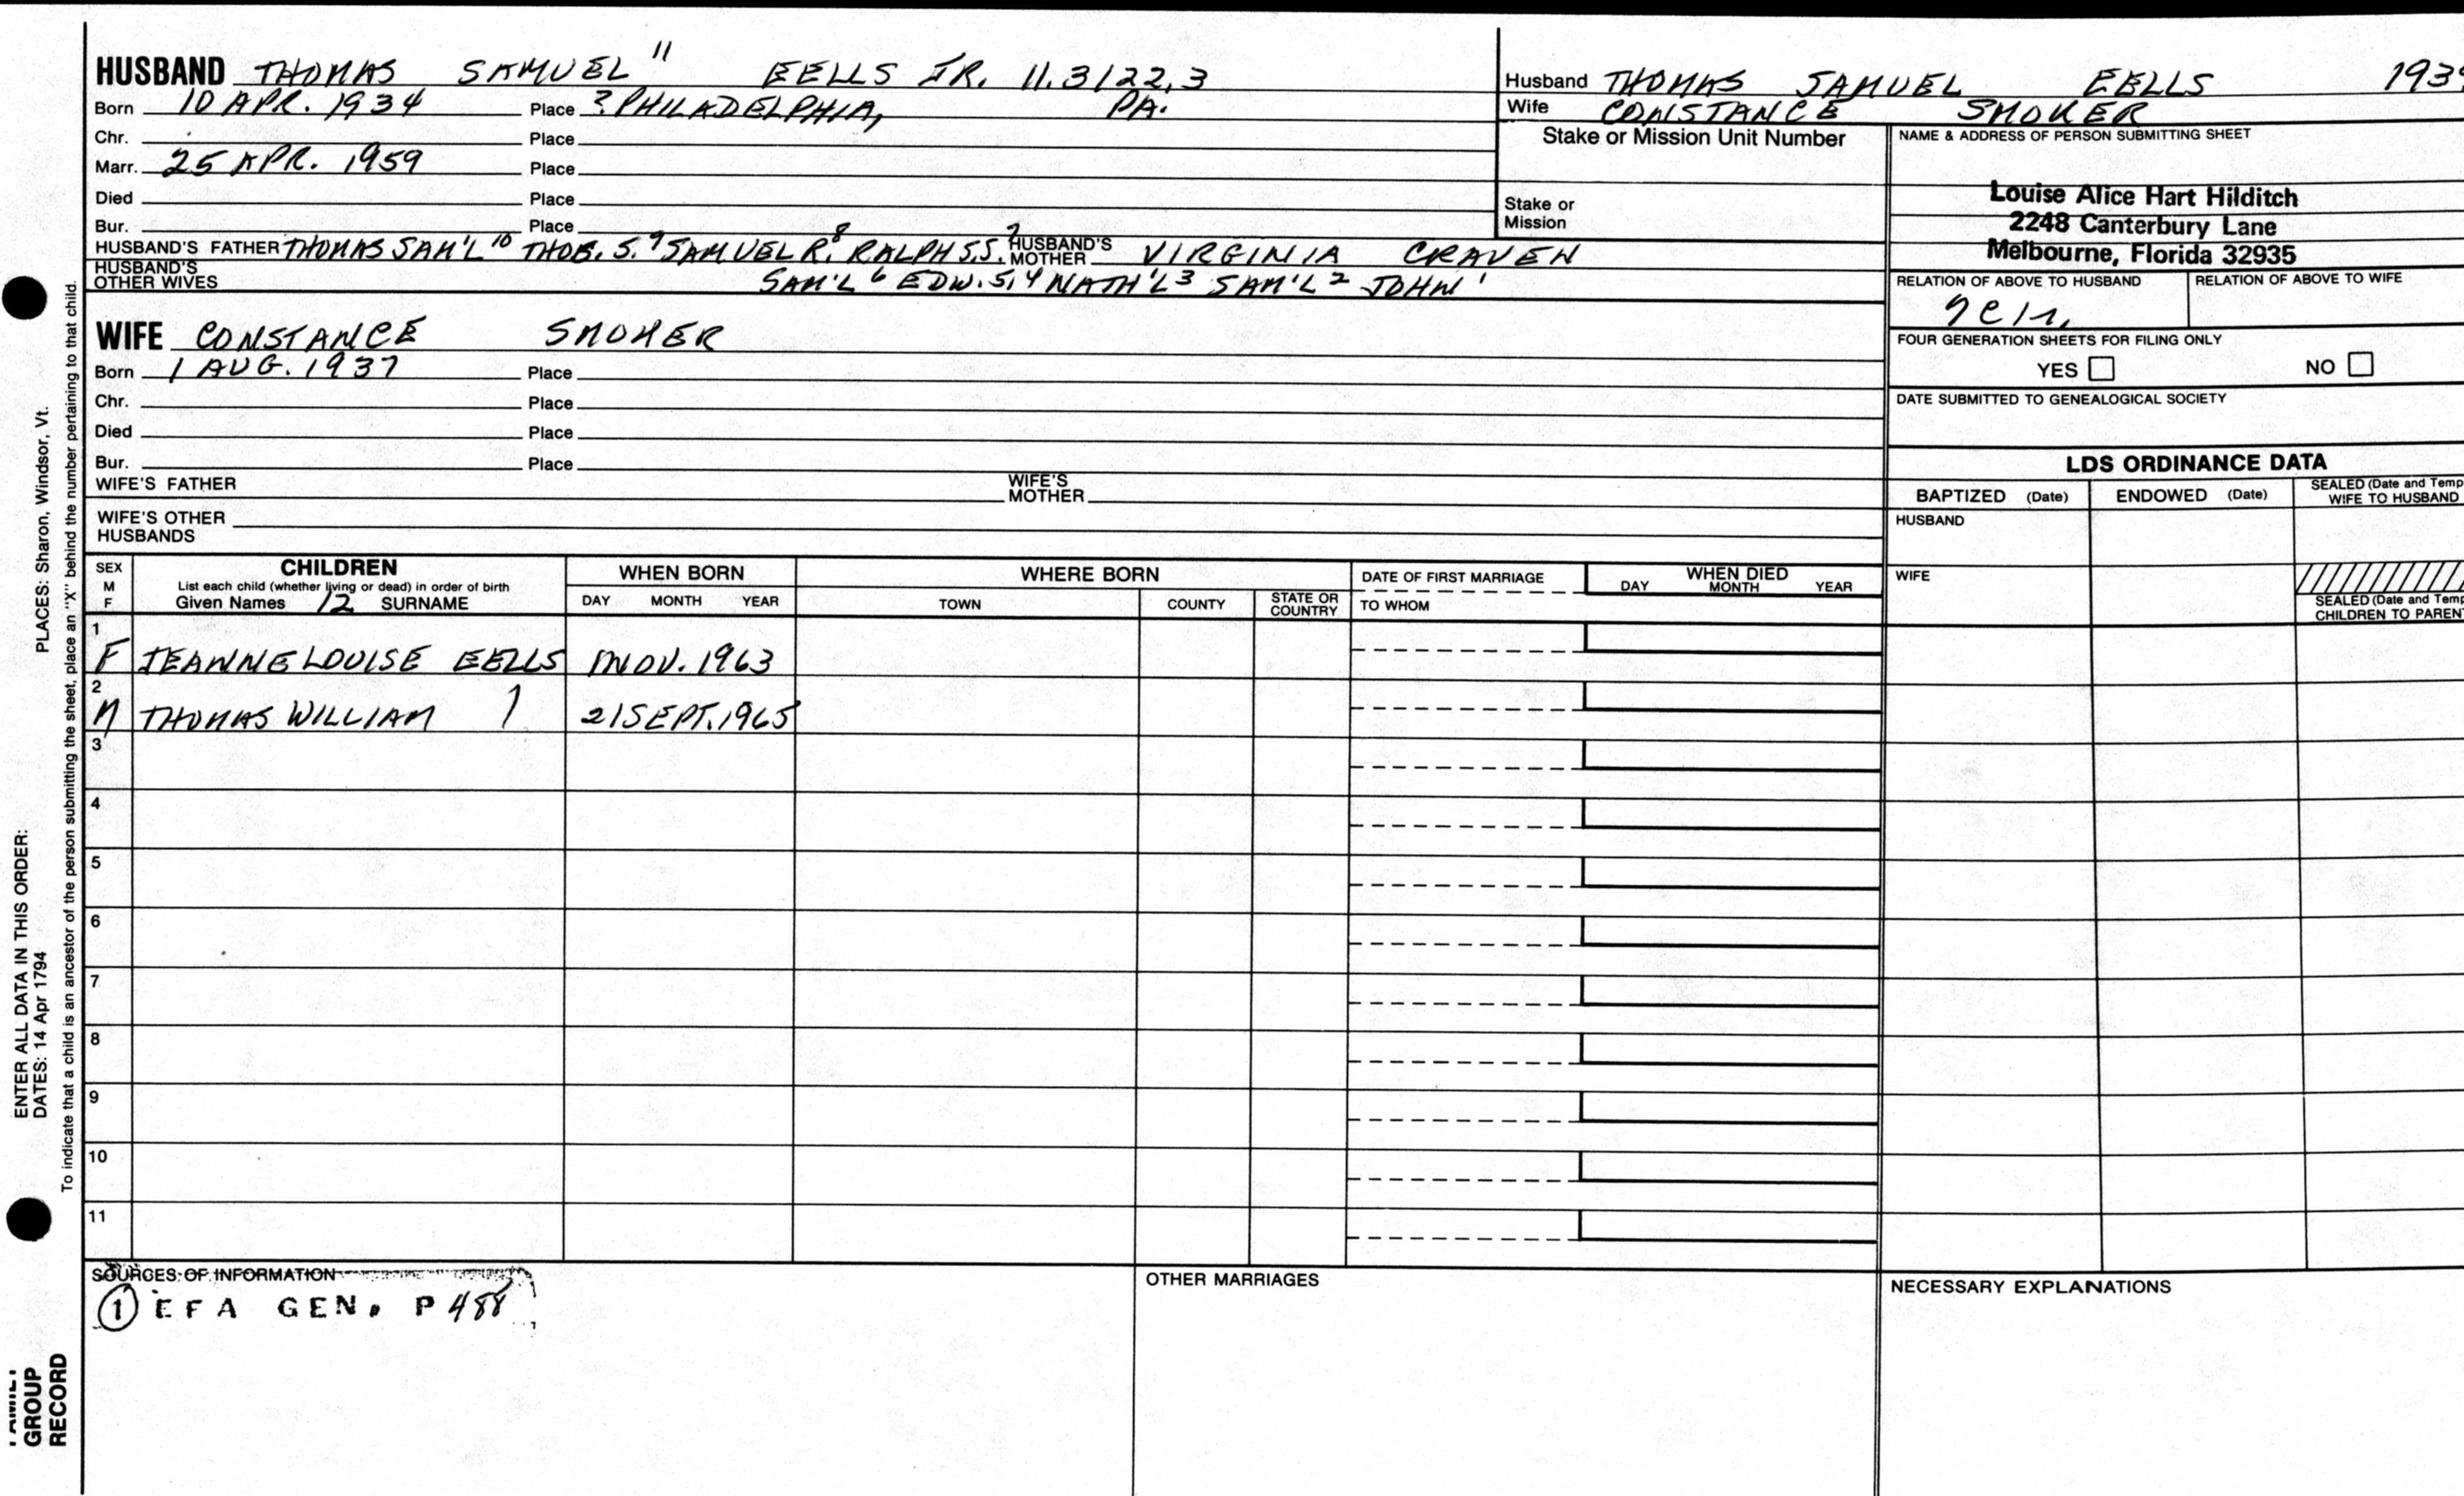 HUSBAND THOMAS SAMUEL 11 EELLS JR. 11.3122,3
Born 10 APR. 1934 Place ? PHILADELPHIA, PA.
Chr. Place
Marr. 25 APR. 1959 Place
Died Place
Bur. Place
HUSBAND'S FATHER THOMAS SAM'L 10 THOS. S. 9 SAMUEL R. 8 RALPH S.S. 7 HUSBAND'S MOTHER VIRGINIA CRAVEN
HUSBAND'S OTHER WIVES SAM'L 6 EDW. 5,4 NATH'L 3 SAM'L 2 JOHN 1
WIFE CONSTANCE SMOKER
Born 1 AUG. 1937 Place
Chr. Place
Died Place
Bur. Place
WIFE'S FATHER WIFE'S MOTHER
WIFE'S OTHER HUSBANDS
Husband THOMAS SAMUEL EELLS 193
Wife CONSTANCE SMOKER
Stake or Mission Unit Number
Stake or
Mission
NAME & ADDRESS OF PERSON SUBMITTING SHEET
Louise Alice Hart Hilditch
2248 Canterbury Lane
Melbourne, Florida 32935
RELATION OF ABOVE TO HUSBAND RELATION OF ABOVE TO WIFE
FOUR GENERATION SHEETS FOR FILING ONLY
YES NO
DATE SUBMITTED TO GENEALOGICAL SOCIETY
LDS ORDINANCE DATA
BAPTIZED (Date) ENDOWED (Date) SEALED (Date and Temp
WIFE TO HUSBAND
HUSBAND
WIFE
SEALED (Date and Temp
CHILDREN TO PAREN
SEX
M
F
CHILDREN
List each child (whether living or dead) in order of birth
Given Names 12 SURNAME
WHEN BORN
DAY MONTH YEAR
WHERE BORN
TOWN COUNTY STATE OR COUNTRY
DATE OF FIRST MARRIAGE
TO WHOM
WHEN DIED
DAY MONTH YEAR
1
F JEANNE LOUISE EELLS 1 NOV. 1963
2
M THOMAS WILLIAM 21 SEPT. 1965
3
4
5
6
7
8
9
10
11
SOURCES OF INFORMATION
1 EFA GEN. P 488
OTHER MARRIAGES
NECESSARY EXPLANATIONS
ENTER ALL DATA IN THIS ORDER:
DATES: 14 Apr 1794
PLACES: Sharon, Windsor, Vt.
To indicate that a child is an ancestor of the person submitting the sheet, place an "X" behind the number pertaining to that child.
FAMILY
GROUP
RECORD